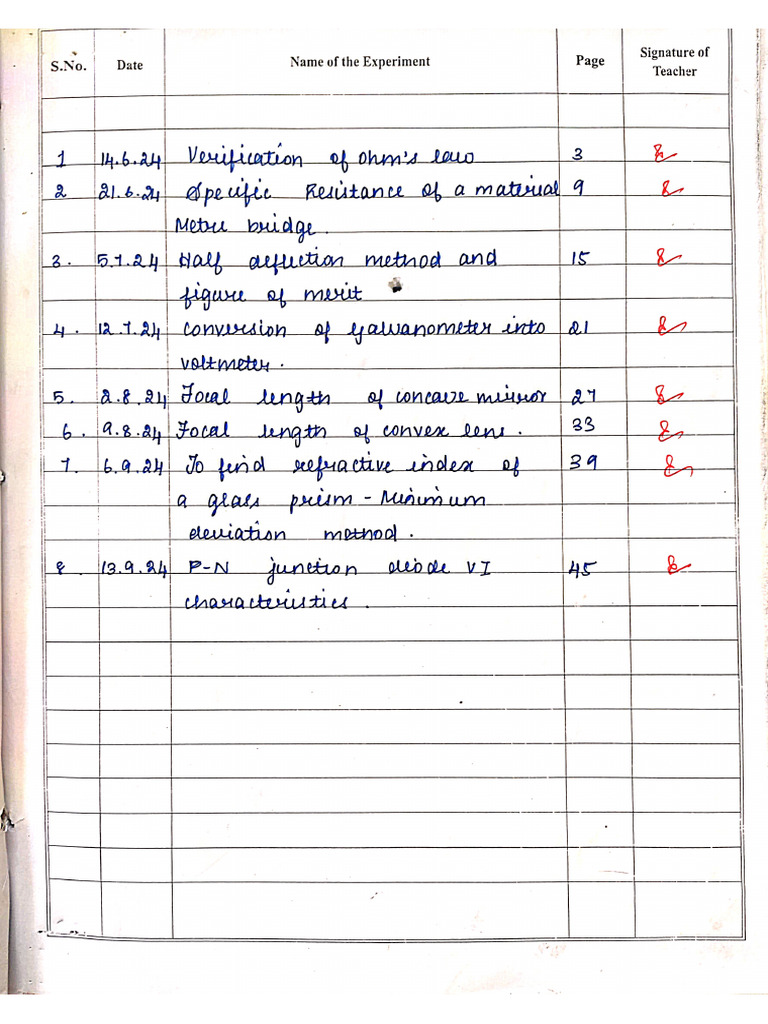 S.No. Date Name of the Experiment Page Signature of
Teacher
1 14.6.24 Verification of Ohm's law 3
2 21.6.24 Specific Resistance of a material 9
Metre bridge.
3. 5.7.24 Half deflection method and 15
figure of merit
4. 12.7.24 conversion of galvanometer into 21
voltmeter.
5. 2.8.24 Focal length of concave mirror 27
6. 9.8.24 Focal length of convex lens. 33
7. 6.9.24 To find refractive index of 39
a glass prism - Minimum
deviation method.
8. 13.9.24 P-N junction diode VI 45
characteristics.